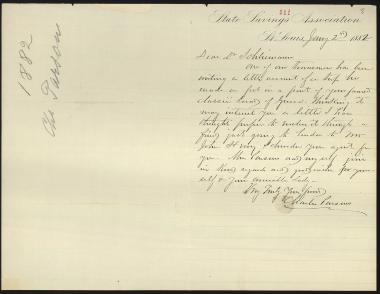 1882
Chs Parsons
State Savings Association
St Louis Jany 2nd 1882
Dear Dr Schliemann
One of our Townsmen has been
writing a little account of a trip he
made on foot in a part of your
classic land of Greece. Thinking it
may interest you a little I have
through a
friend just going to London to Mr
John
you. Mrs Parsons and myself join
in kind regards and for your
self & your amiable Lady
Very Truly Your friend
Charles Parsons